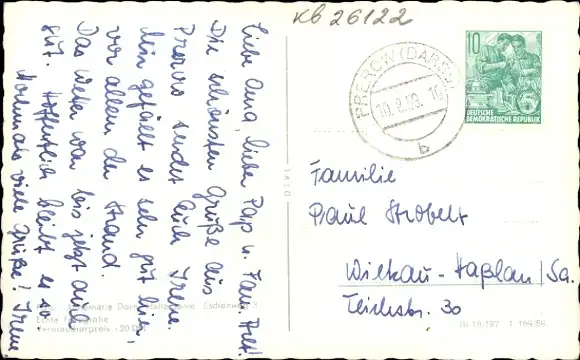 Kb 26122
Liebe Oma, lieber Pap u. Fam. Prlf.!
Die schönsten Grüße aus
Prerow sendet Euch Irene.
Mir gefällt es sehr gut hier,
vor allem der Strand.
Das Wetter war bis jetzt auch
gut. Hoffentlich bleibt es so
Nochmals viele Grüße! Irene
PREROW (DARSS)
10.8.09. 16
b
10
DEUTSCHE
DEMOKRATISCHE REPUBLIK
Familie
Paul Strobelt
Wilkau-Haßlau/Sa.
Teichstr. 30
Eschenweg 3
Echte Fotografie
Verbraucherpreis -.20 DM
III 18 197 1 109 58